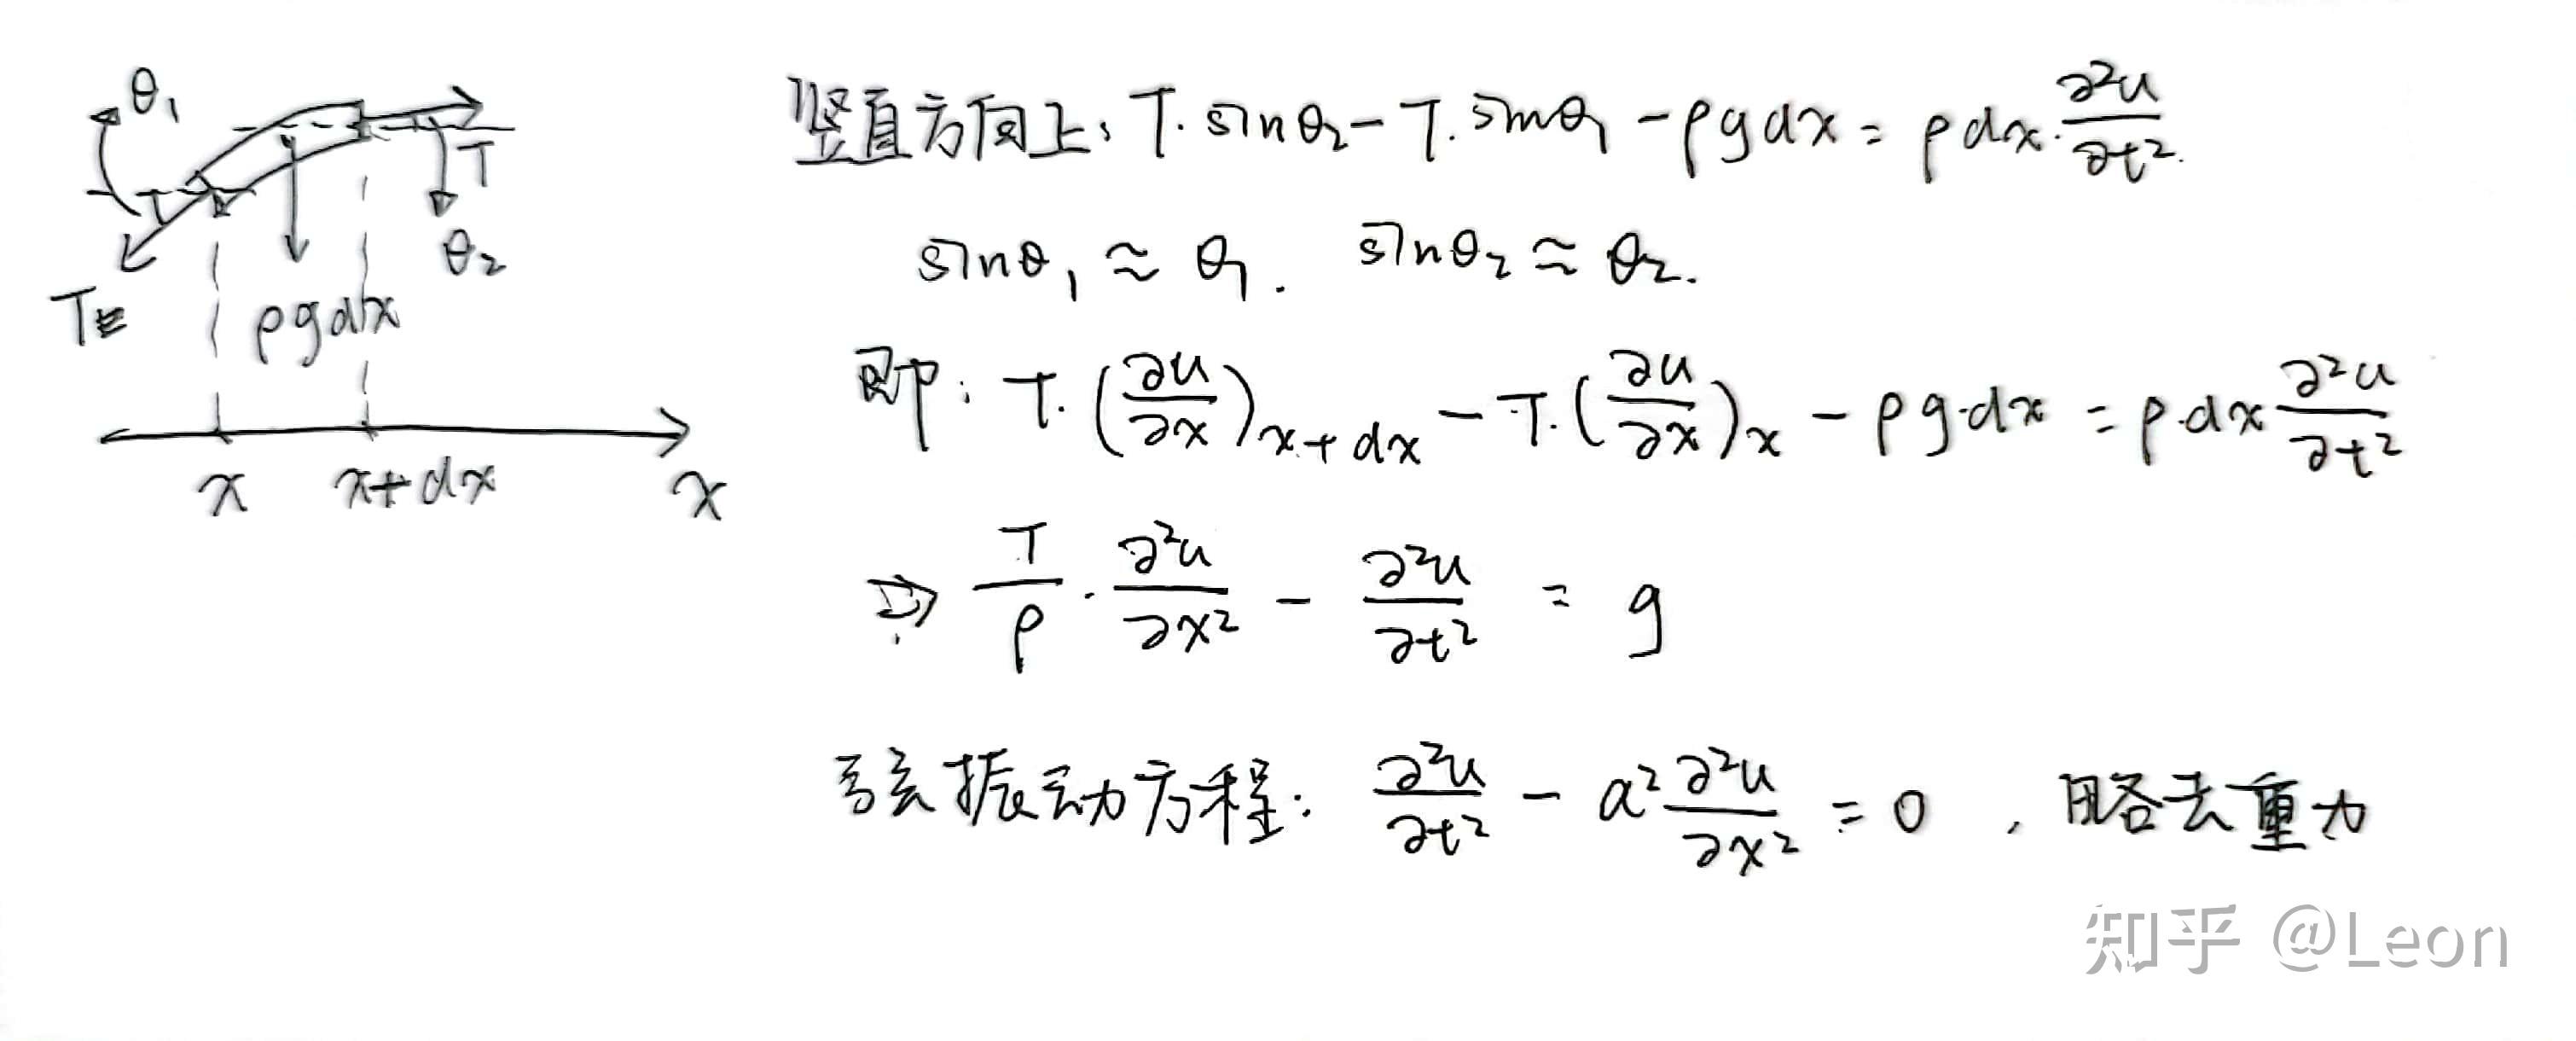 θ₁
T
θ₂
T
ρgdx
x x+dx x
竖直方向上: T·sinθ₂ - T·sinθ₁ - ρgdx = ρdx·∂²u/∂t²
sinθ₁ ≈ θ₁. sinθ₂ ≈ θ₂.
即: T·(∂u/∂x)ₓ₊dx - T·(∂u/∂x)ₓ - ρg·dx = ρ·dx ∂²u/∂t²
⇒ T/ρ · ∂²u/∂x² - ∂²u/∂t² = g
弦振动方程: ∂²u/∂t² - a² ∂²u/∂x² = 0 , 略去重力
知乎 @Leon